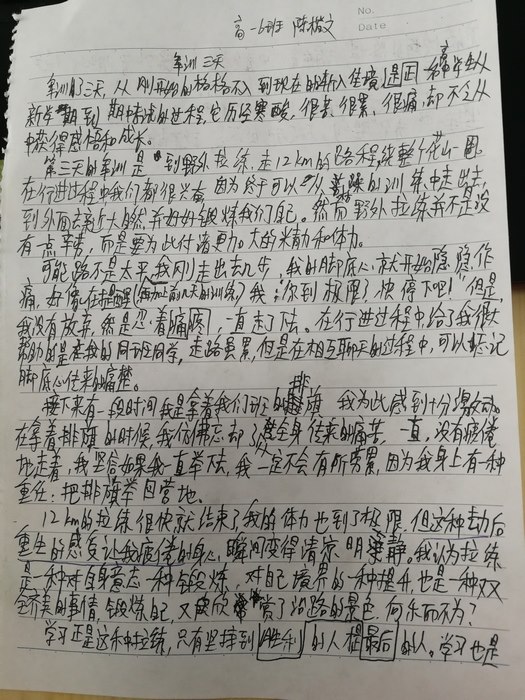 No.
Date
高一6班 陈楷文
军训三天
军训了三天,从刚开始的格格不入到现在的渐入佳境,这是因
新学期到期末的过程,它历经寒酸,很苦,很累,很痛,却不会从
中获得感悟和成长。
第三天的军训是到野外拉练,走12km的路程绕整个花山一圈。
在行进过程中我们都很兴奋,因为终于可以从的训练中走出去,
到外面去亲近大自然,并好好锻炼我们自己。然而野外拉练并不是没
有一点辛劳,而是要为此付诸更加大的精力和体力。
可能路不是太平,我刚走出去几步,我的脚底心就开始隐隐作
痛,好像在提醒(再加上前几天的训练)我:“你到极限了,快停下吧!”但是,
我没有放弃,然是忍着痛疼,一直走下去。在行进过程中,给了我很大
帮助的是在我的同班同学,走路虽累,但是在相互聊天的过程中,可以忘记
脚底心传来的痛楚。
接下来有一段时间我是拿着我们班的排旗,我为此感到十分激动。
在拿着排旗的时候,我仿佛忘却了从全身传来的痛苦,一直,没有疲倦
地走着,我坚信如果我一直举下去,我一定不会有所劳累,因为我身上有一种
重任:把排旗举回营地。
12km的拉练很快就结束了,我的体力也到了极限,但这种劫后
重生的感受让我疲倦的身心瞬间变得清凉、明静。我认为拉练
是一种对自身意志一种锻炼,对自己境界的一种提升,也是一种双
全齐美的事情,锻炼自己,又欣赏了沿路的景色,何乐而不为?
学习正是这种拉练,只有坚持到胜利的人是最后的人。学习也是